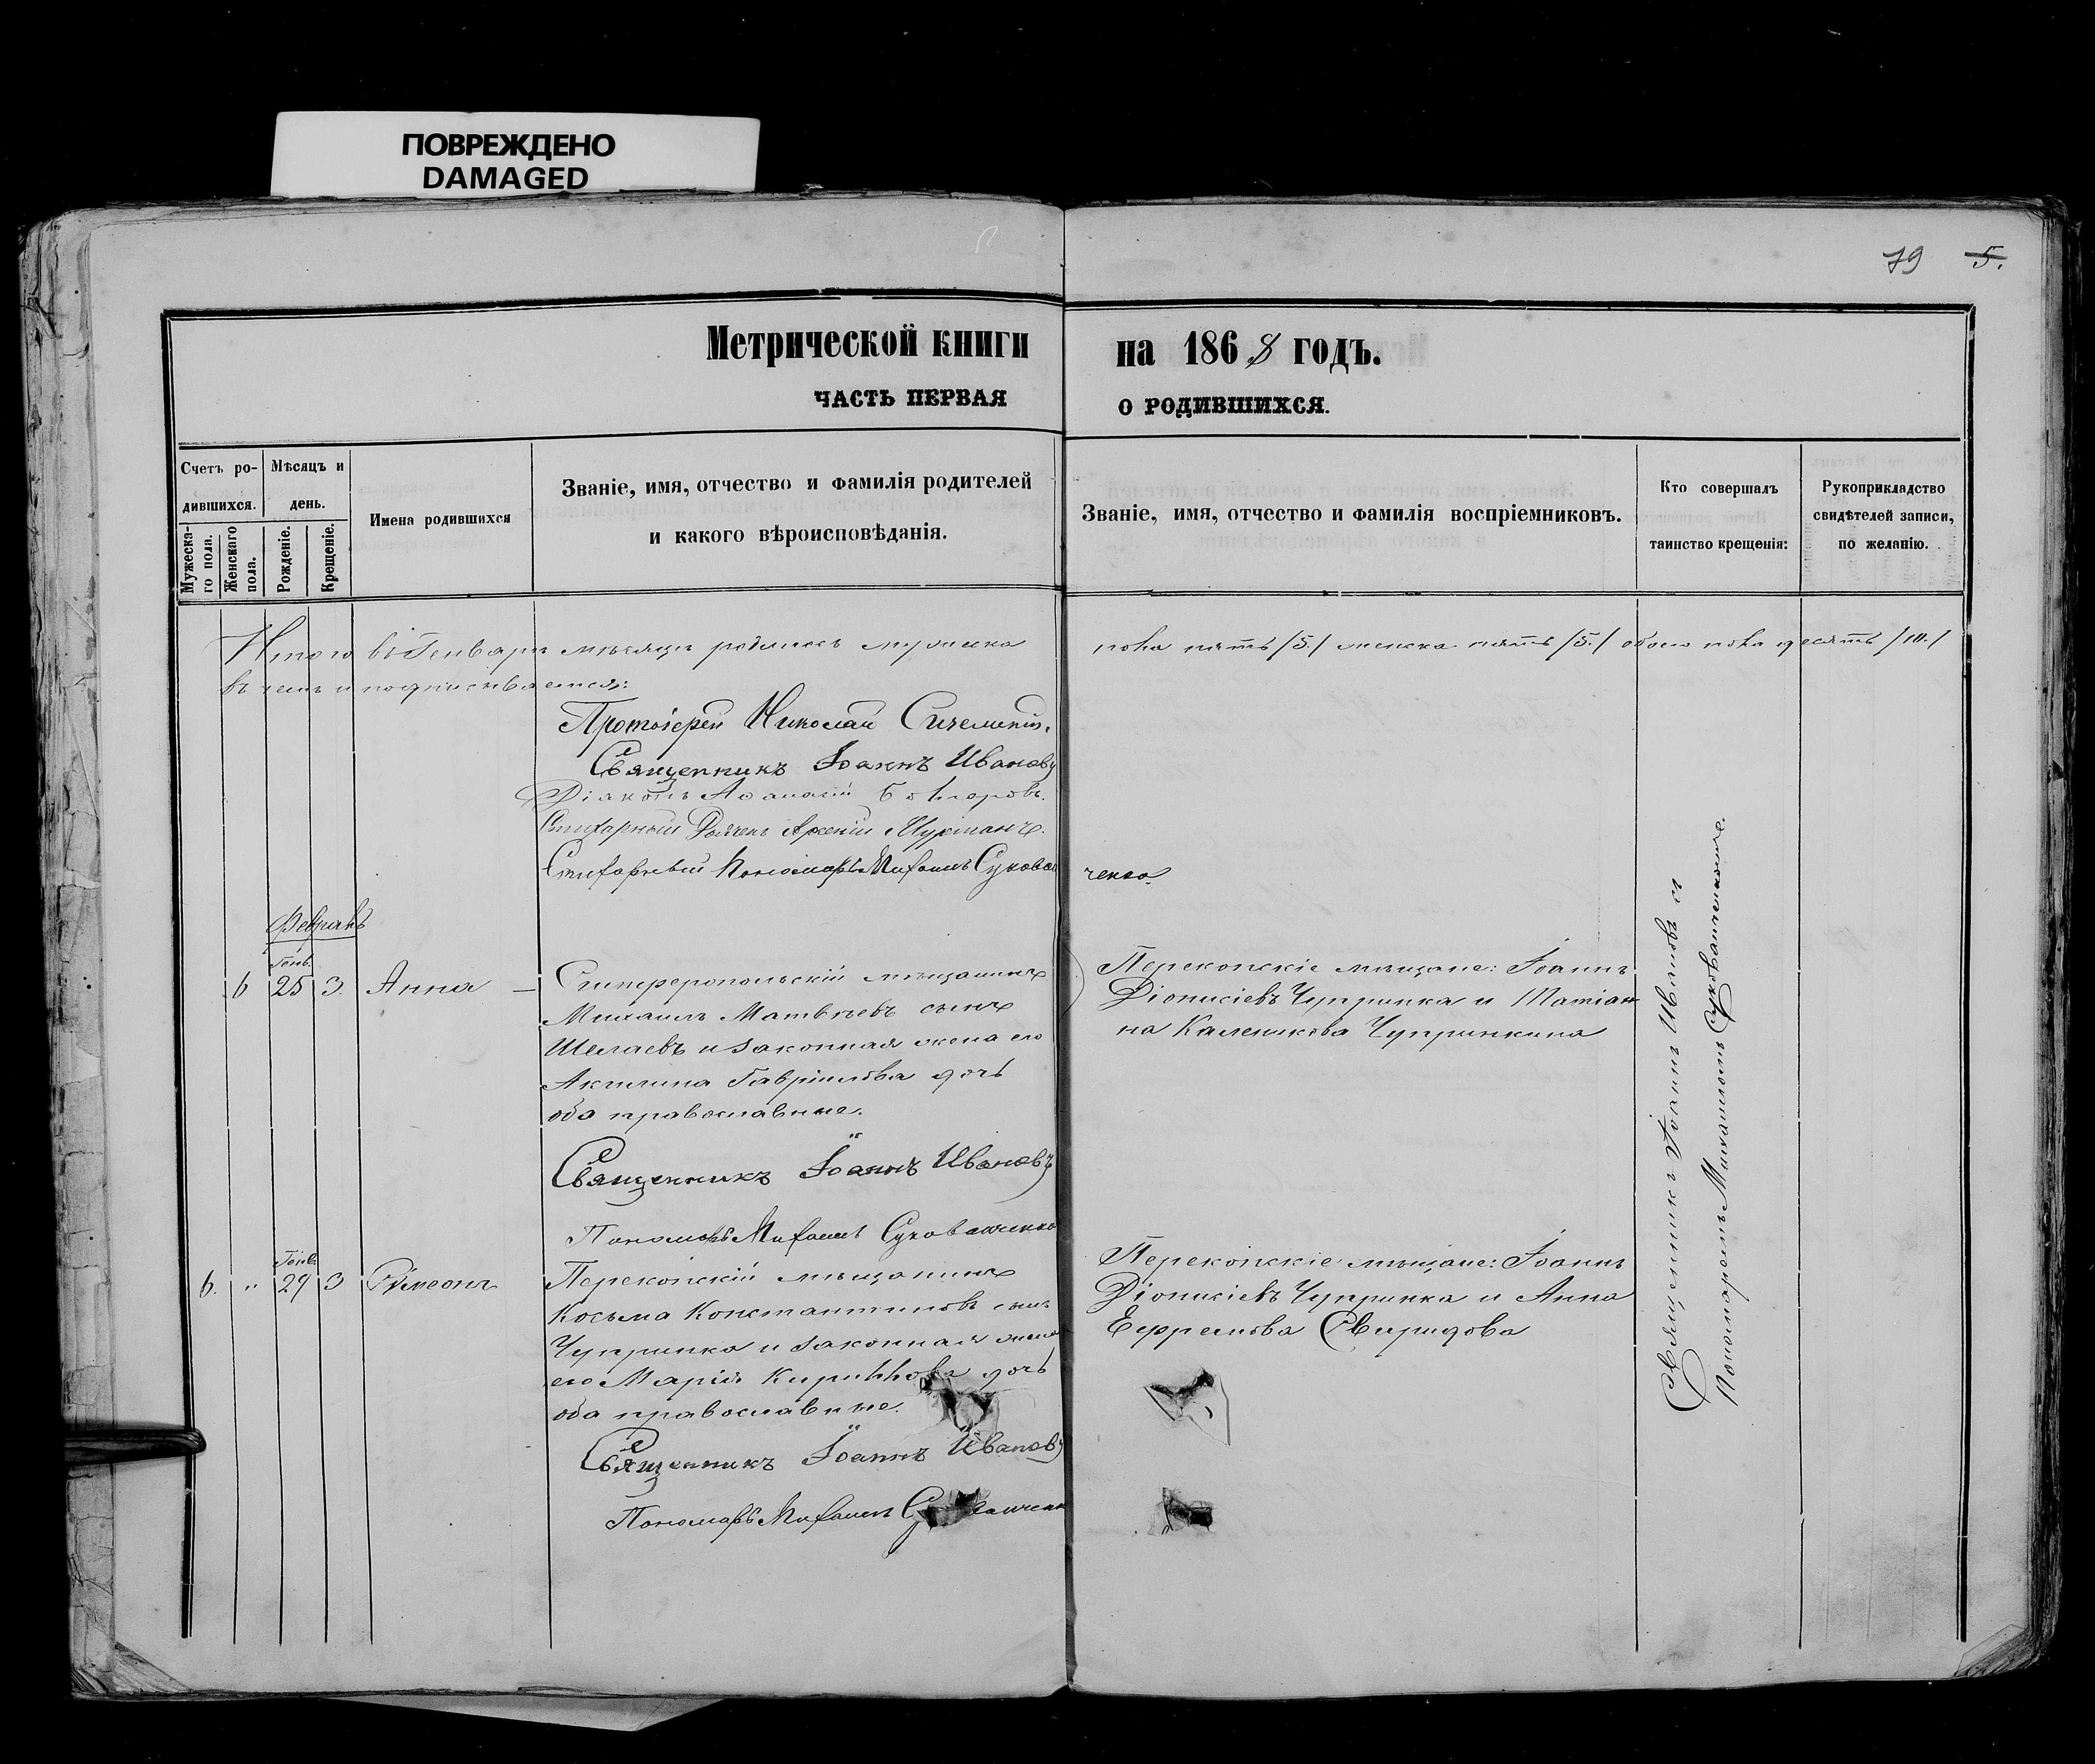 ПОВРЕЖДЕНО
DAMAGED
79 5.
Метрической книги на 1868 годъ.
ЧАСТЬ ПЕРВАЯ О РОДИВШИХСЯ.
Счетъ ро-
дившихся.
Мужеска-
го пола.
Женскаго
пола.
Мѣсяцъ и
день.
Рожденіе.
Крещеніе.
Имена родившихся
Званіе, имя, отчество и фамилія родителей
и какого вѣроисповѣданія.
Званіе, имя, отчество и фамилія воспріемниковъ.
Кто совершалъ
таинство крещенія:
Рукоприкладство
свидѣтелей записи,
по желанію.
Итого въ Генварѣ мѣсяцѣ родилось мужеска пола пять /5./ женска пять /5./ обоего пола десять /10./
въ чемъ и подписываемся:
Протоіерей Николай
Священникъ Іоаннъ Ивановъ
Діаконъ Аѳанасій
Стихарный Арсеній
Стихарный Пономарь Михаилъ Суховатченко.
Февраль
Генв.
6 25 3. Анна
Симферопольскій мѣщанинъ
Михаилъ Матвѣевъ сынъ
Шелаевъ и законная жена его
Акилина Гавріилова дочь
оба православные.
Священникъ Іоаннъ Ивановъ
Пономарь Михаилъ Суховатченко
Перекопскіе мѣщане: Іоаннъ
Діонисіевъ Чупринка и Татіан-
на Каленикова Чупринкина
Генв.
6. " 29 3 Сѵмеонъ
Перекопскій мѣщанинъ
Косьма Константиновъ сынъ
Чупринка и законная жена
его Марія Кириллова дочь
оба православные.
Священникъ Іоаннъ Ивановъ
Пономарь Михаилъ
Перекопскіе мѣщане: Іоаннъ
Діонисіевъ Чупринка и Анна
Ефремова Свиридова
Священникъ Іоаннъ Ивановъ съ
Пономаремъ Михаиломъ Суховатченкомъ.